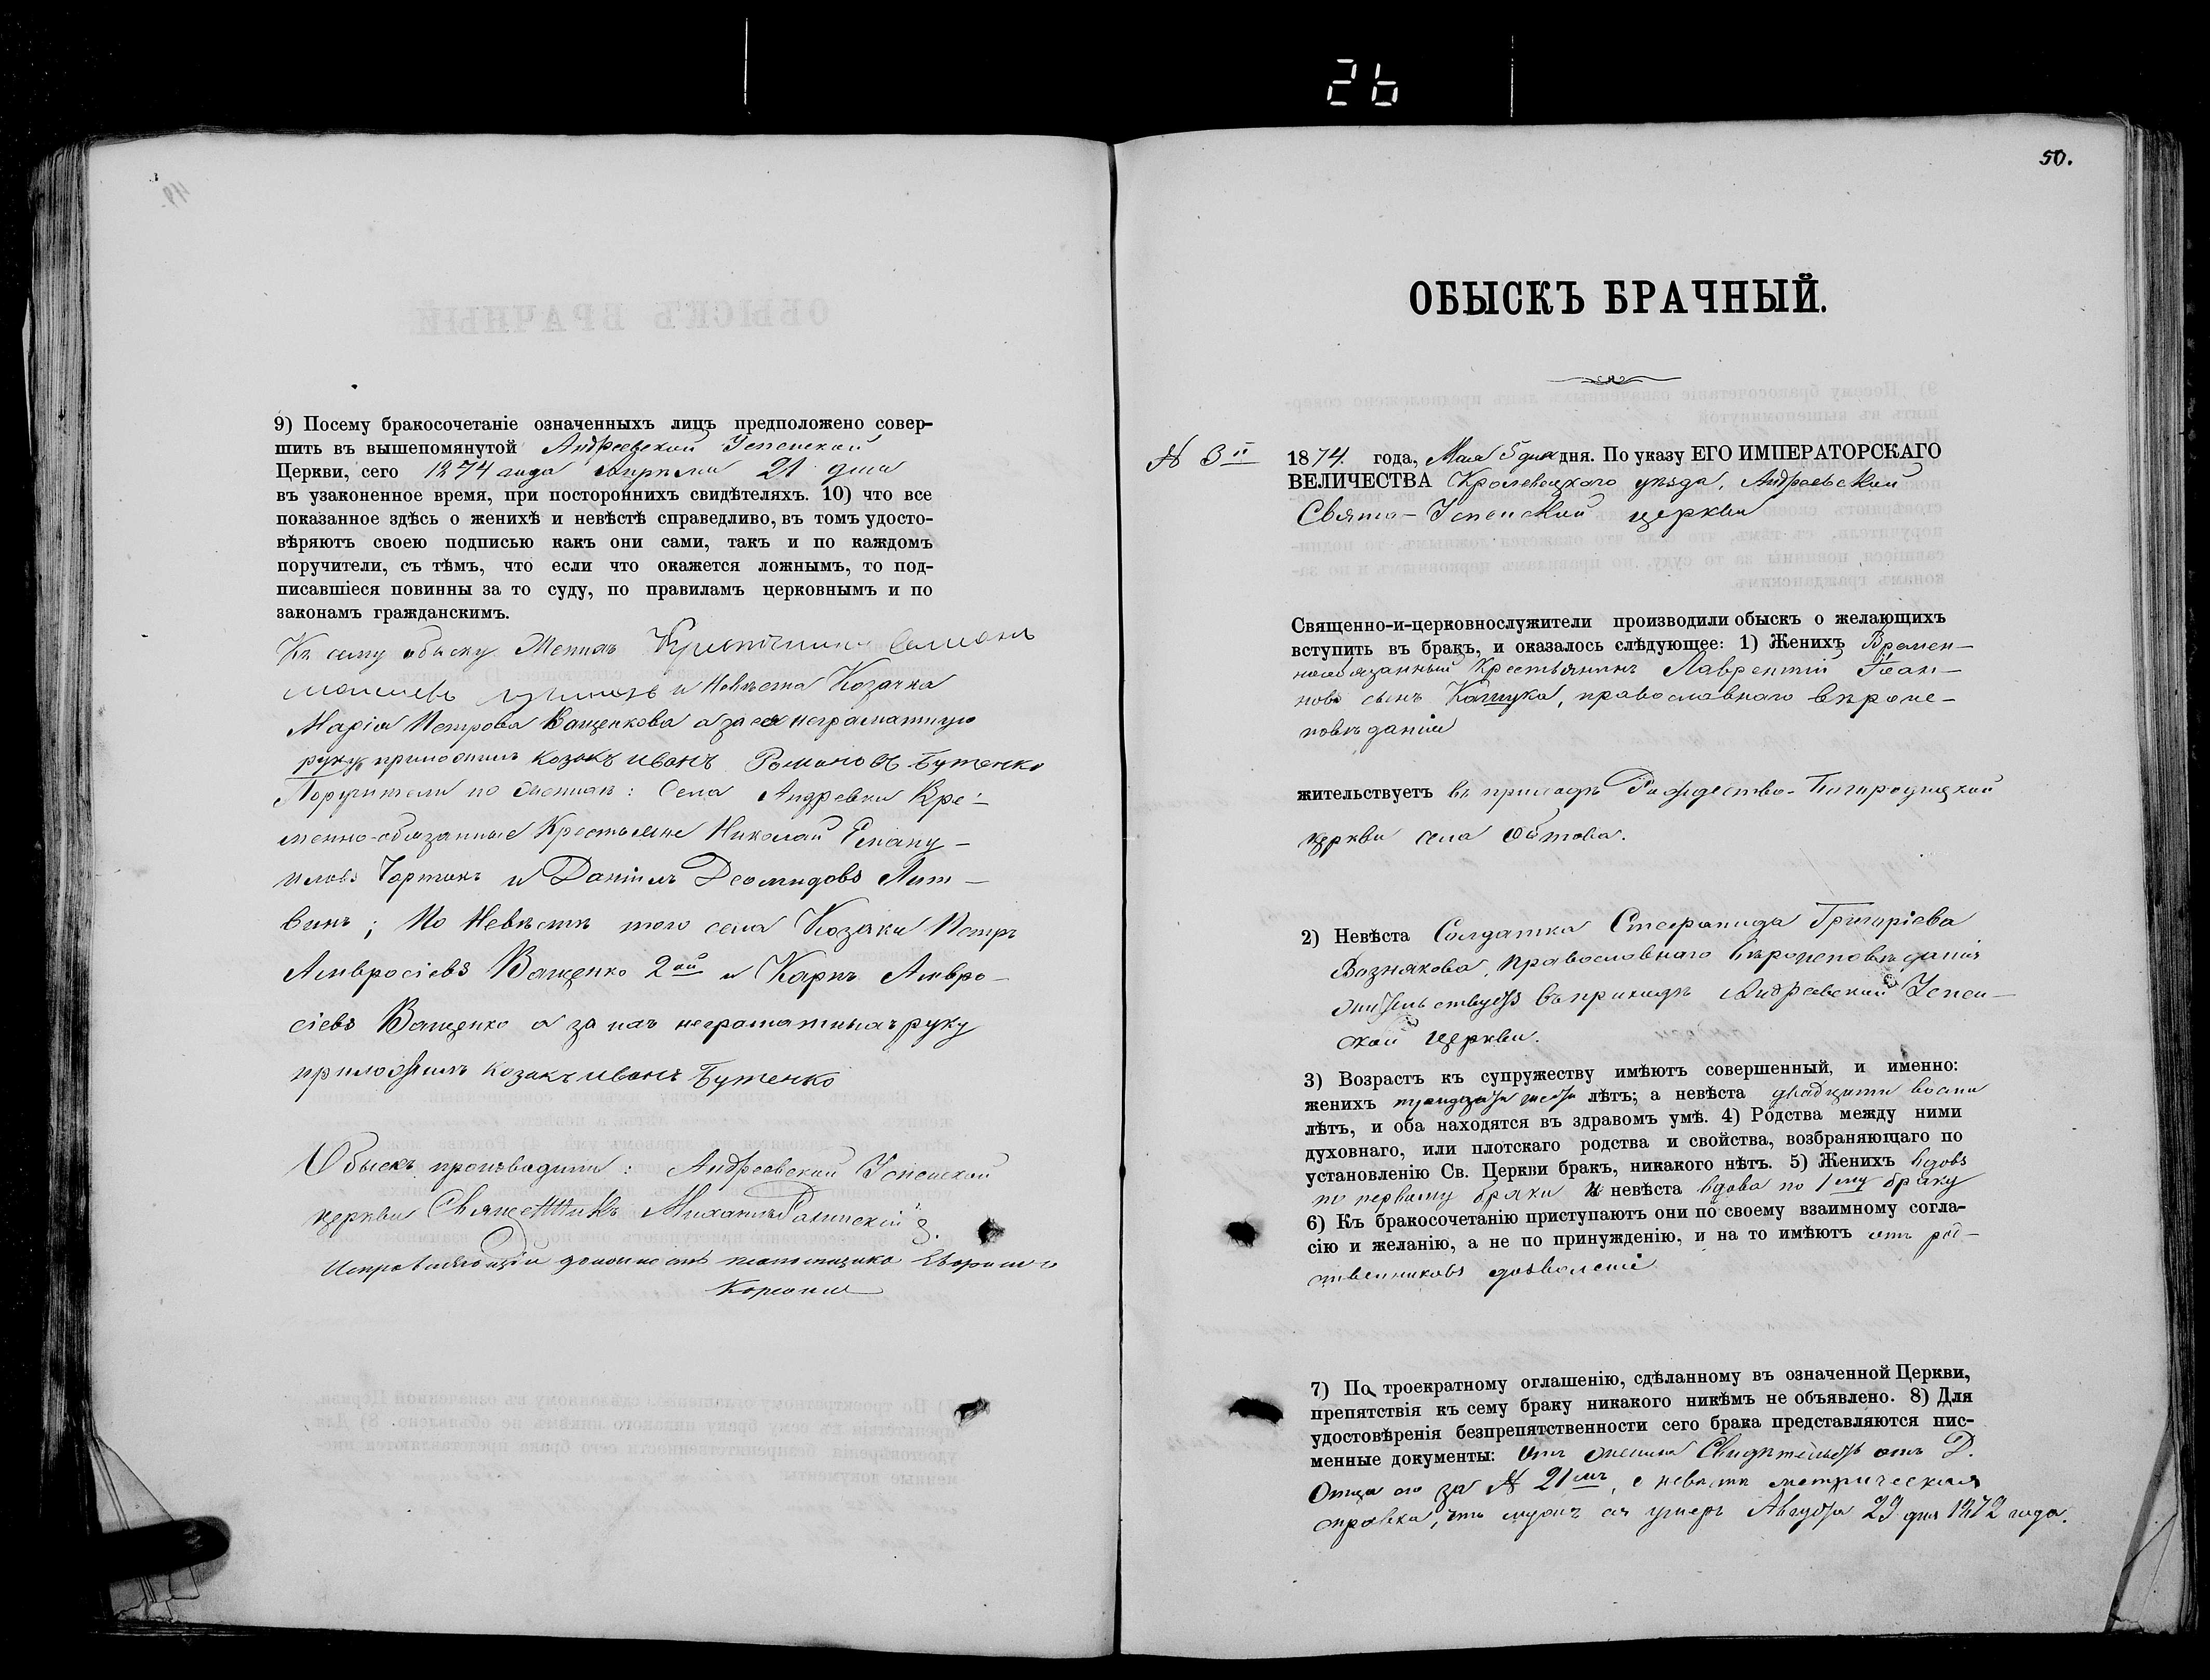 26
9) Посему бракосочетаніе означенныхъ лицъ предположено совер-
шить въ вышепомянутой Андреевской Успенской
Церкви, сего 1874 года Апреля 21 дня
въ узаконенное время, при постороннихъ свидѣтеляхъ. 10) что все
показанное здѣсь о женихѣ и невѣстѣ справедливо, въ томъ удосто-
вѣряютъ своею подписью какъ они сами, такъ и по каждомъ
поручители, съ тѣмъ, что если что окажется ложнымъ, то под-
писавшіеся повинны за то суду, по правиламъ церковнымъ и по
законамъ гражданскимъ.
Къ сему обыску Женихъ
и Невѣста Козачка
Марія Петрова Ващенкова а за ея неграматную
руку приложилъ козакъ иванъ Романовъ Бутенко
Поручители по женихѣ: Села Андревки Вре-
менно-обязанные Крестьяне Николай Еману-
иловъ Чортокъ и Даніилъ Деомидовъ Лит-
винъ; По Невѣстѣ того села Козаки Петръ
Амвросіевъ Ващенко 2ой и Карпъ Амвро-
сіевъ Ващенко а за нихъ неграматныхъ руку
приложилъ козакъ иванъ Бутенко
Обыскъ производили: Андреевской Успенской
церкви Священникъ Михаилъ
Исправляющій должность псаломщика
50.
ОБЫСКЪ БРАЧНЫЙ.
№ 3й
1874. года, Мая 5 дня дня. По указу ЕГО ИМПЕРАТОРСКАГО
ВЕЛИЧЕСТВА Кролевецкаго уѣзда, Андреевской
Свято-Успенской церкви
Священно-и-церковнослужители производили обыскъ о желающихъ
вступить въ бракъ, и оказалось слѣдующее: 1) Женихъ Времен-
нообязанный Крестьянинъ Лаврентій Іоан-
новъ сынъ православнаго вѣроис-
повѣданія
жительствуетъ въ приходѣ Рождество-Богородицкой
церкви села Обтова.
2) Невѣста Солдатка Стефанида Григоріева
Вознякова, православнаго вѣроисповѣданія
жительствуетъ въ приходѣ Андреевской Успен-
ской церкви.
3) Возрастъ къ супружеству имѣютъ совершенный, и именно:
женихъ тридцати шести лѣтъ; а невѣста двадцати восьми
лѣтъ, и оба находятся въ здравомъ умѣ. 4) Родства между ними
духовнаго, или плотскаго родства и свойства, возбраняющаго по
установленію Св. Церкви бракъ, никакого нѣтъ. 5) Женихъ вдовъ
по первому браку и невѣста вдова по 1му браку
6) Къ бракосочетанію приступаютъ они по своему взаимному согла-
сію и желанію, а не по принужденію, и на то имѣютъ отъ род-
ственниковъ дозволеніе
7) По троекратному оглашенію, сдѣланному въ означенной Церкви,
препятствія къ сему браку никакого никѣмъ не объявлено. 8) Для
удостовѣренія безпрепятственности сего брака представляются пис-
менные документы: Отъ жениха Свидѣтельство отъ Д.
Отца его за № 21мъ, о невѣстѣ метрическая
справка, что мужъ ея умеръ Августа 29 дня 1872 года.